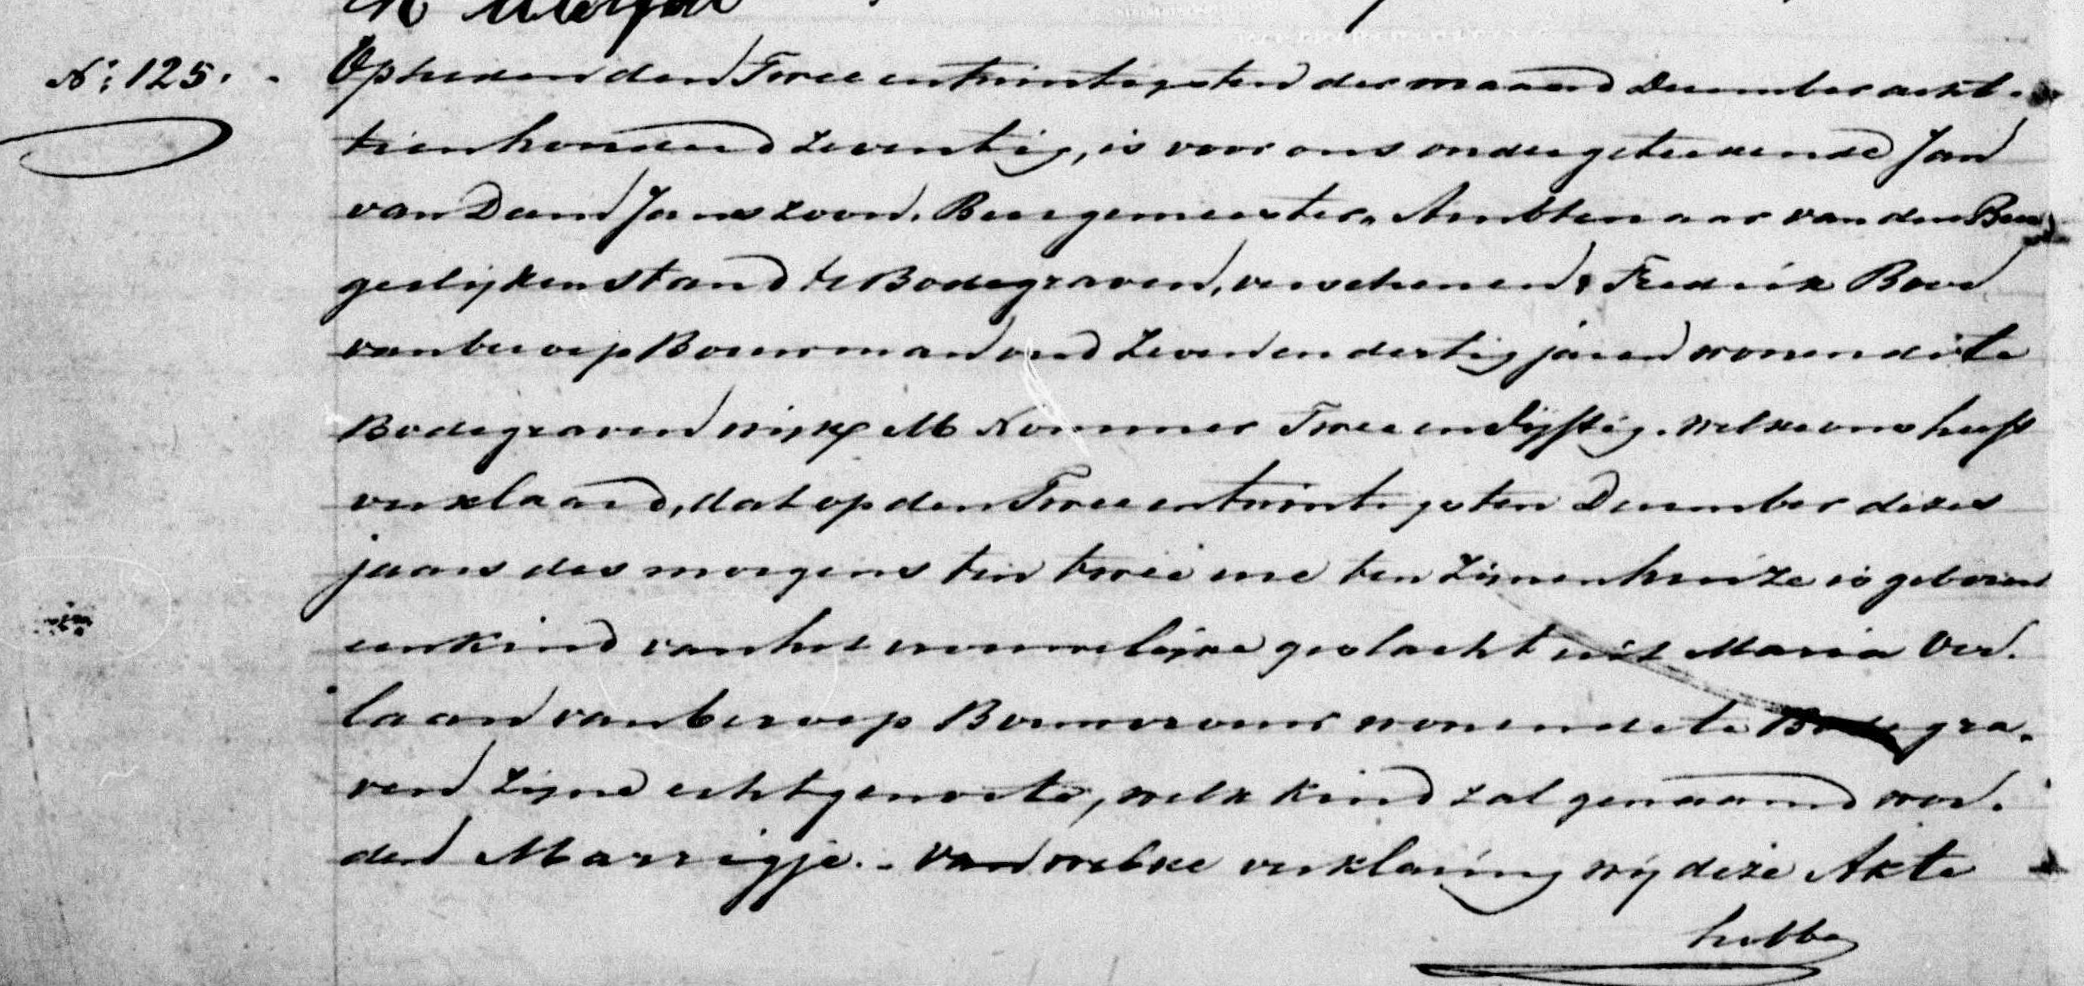 N: 125.
Op heden den Twee en twintigsten der maand December acht-
tienhonderd zeventig, is voor ons ondergeteekende Jan
van Dam Janszoon, Burgemeester, Ambtenaar van den Bur
gerlijken stand te Bodegraven, verschenen: Fredrik
van beroep Bouwman oud Zeven en dertig jaren wonende te
Bodegraven wijk M Nommer Twee en vijftig. welke ons heeft
verklaard, dat op den Twee en twintigsten December dezes
jaars des morgens ten twee ure ten zijnen huize is geboren
een kind van het vrouwelijke geslacht uit Maria Ver-
laan van beroep Bouwvrouw wonende te Bodegra-
ven zijne echtgenoote, welk kind zal genaamd wor-
den Marrigje. - Van welke verklaring wij deze Akte
hebben